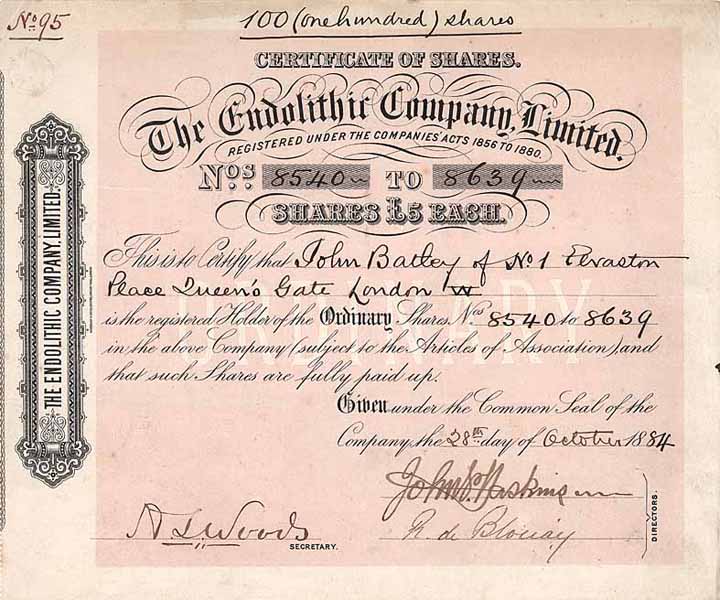 No. 95
100 (one hundred) shares
CERTIFICATE OF SHARES.
The Endolithic Company, Limited.
REGISTERED UNDER THE COMPANIES' ACTS 1856 TO 1880.
Nos. 8540 TO 8639
SHARES £5 EACH.
This is to Certify that John Batley of No 1 Elvaston
Place Queen's Gate London W
is the registered Holder of the Ordinary Shares, Nos 8540 to 8639
in the above Company (subject to the Articles of Association), and
that such Shares are fully paid up.
Given under the Common Seal of the
Company, the 28th day of October 1884
A L Woods
SECRETARY.
R. de
DIRECTORS.
THE ENDOLITHIC COMPANY, LIMITED.
ORDINARY